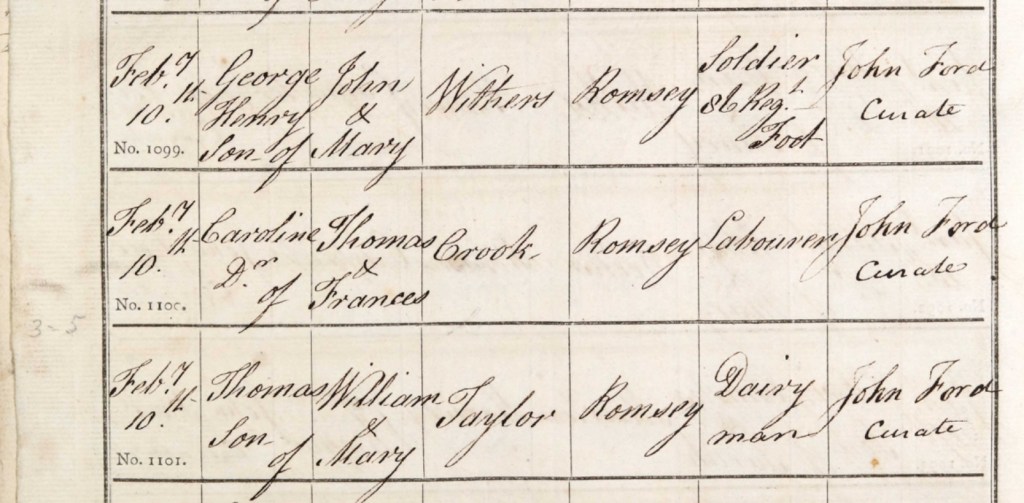 Feb.y George John Withers Romsey Soldier John Ford
10.th Henry & 86 Reg.t Curate
No. 1099. Son of Mary Foot
Feb.y Caroline Thomas Crook Romsey Labourer John Ford
10.th D.r & Curate
No. 1100. of Frances
Feb.y Thomas William Taylor Romsey Dairy John Ford
10.th Son & man Curate
No. 1101. of Mary
3-5